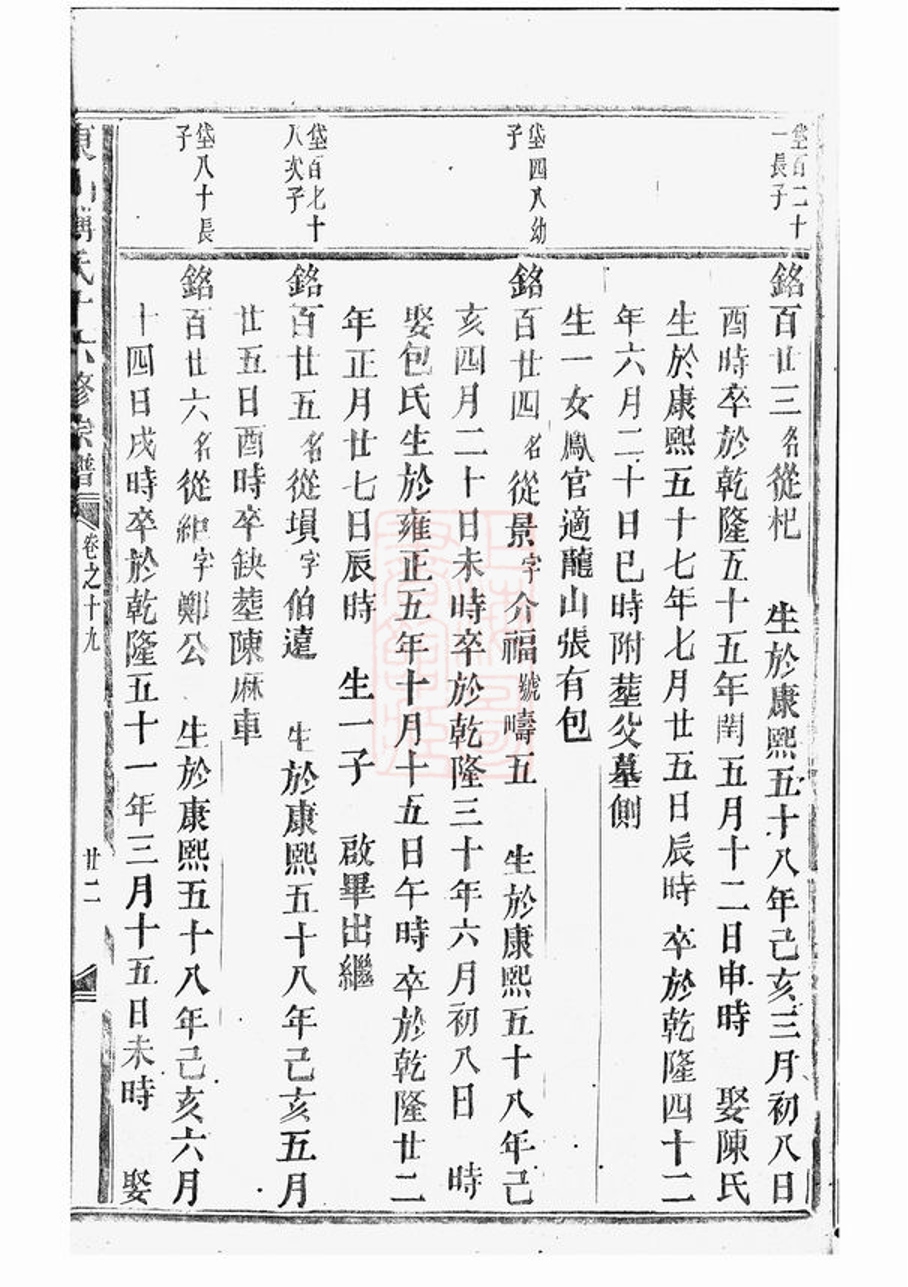 垈百二十一長子
銘百廿三名從杞　生於康熙五十八年己亥三月初八日
酉時卒於乾隆五十五年閏五月十二日申時　娶陳氏
生於康熙五十七年七月廿五日辰時卒於乾隆四十二
年六月二十日巳時附塟父墓側
生一女鳳官適龍山張有包
垈四八幼子
銘百廿四名從景字介福號疇五　生於康熙五十八年己
亥四月二十日未時卒於乾隆三十年六月初八日　時
娶包氏生於雍正五年十月十五日午時卒於乾隆廿二
年正月廿七日辰時　生一子　啟畢出繼
垈百七十八次子
銘百廿五名從塤字伯遠　生於康熙五十八年己亥五月
廿五日酉時卒缺塟陳麻車
垈八十長子
銘百廿六名從紀字鄭公　生於康熙五十八年己亥六月
十四日戌時卒於乾隆五十一年三月十五日未時　娶
東山傅氏十六修宗譜　卷之十九　廿二